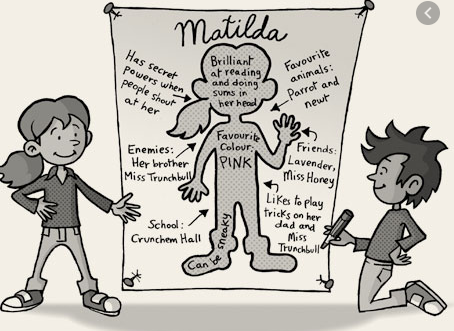 Matilda
Has secret
powers when
people shout
at her
Brilliant
at reading
and doing
sums in
her head
Favourite
animals:
Parrot and
newt
Enemies:
Her brother
Miss Trunchbull
Favourite
Colour:
PINK
Friends:
Lavender,
Miss Honey
School:
Crunchem Hall
Can be sneaky
Likes to play
tricks on her
dad and
Miss
Trunchbull